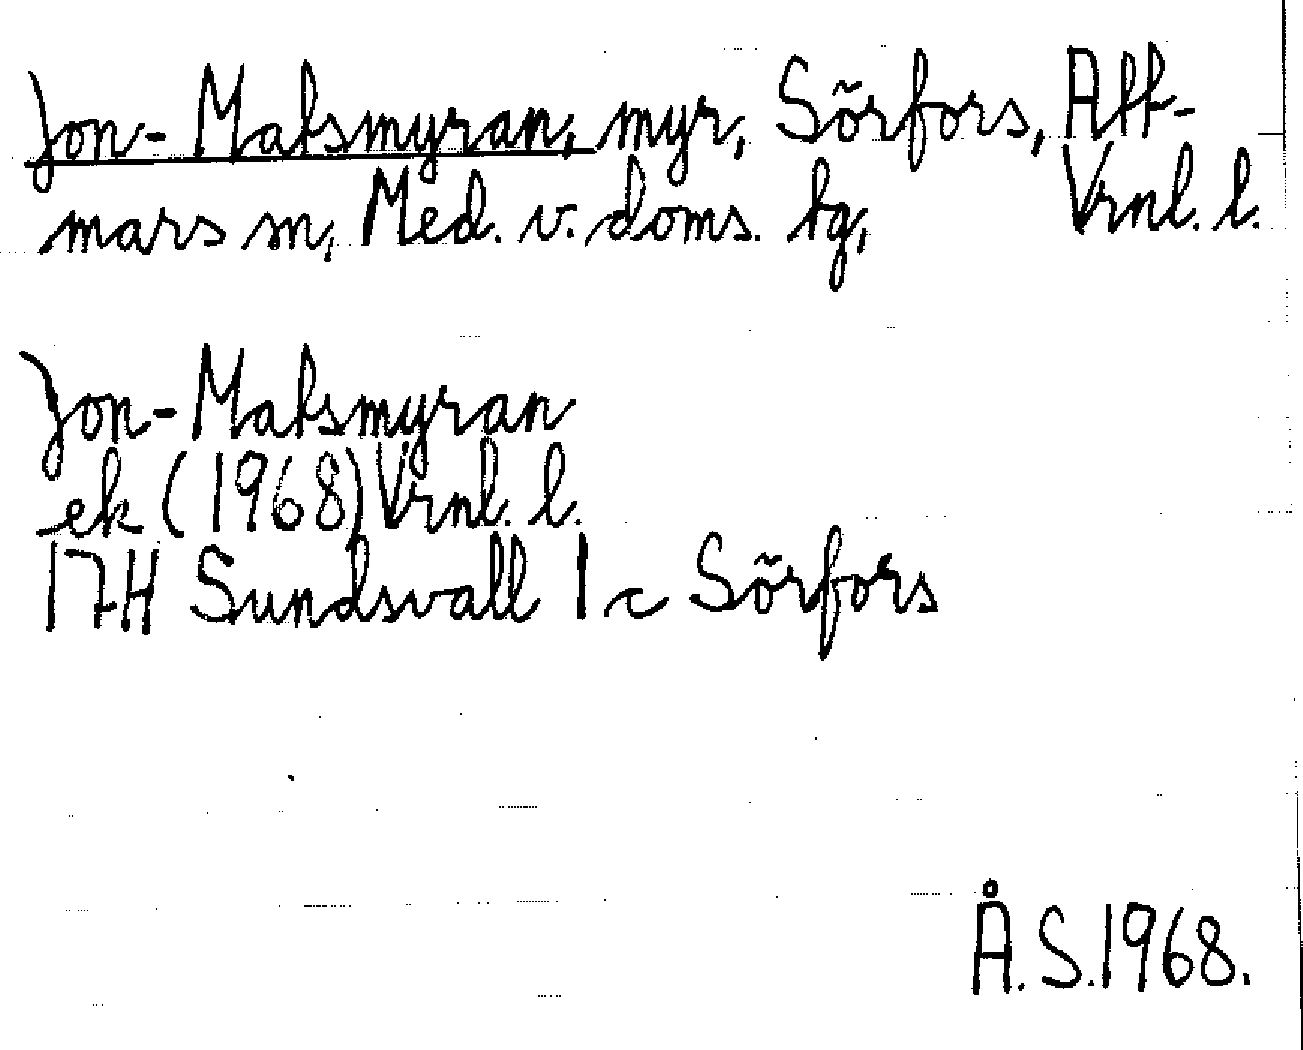 Jon-Matsmyran, myr, Sörfors, Att-
mars sn, Med. v. doms. tg, Vrnl. l.
Jon-Matsmyran
ek (1968) Vrnl. l.
17H Sundsvall 1 c Sörfors
Å.S. 1968.